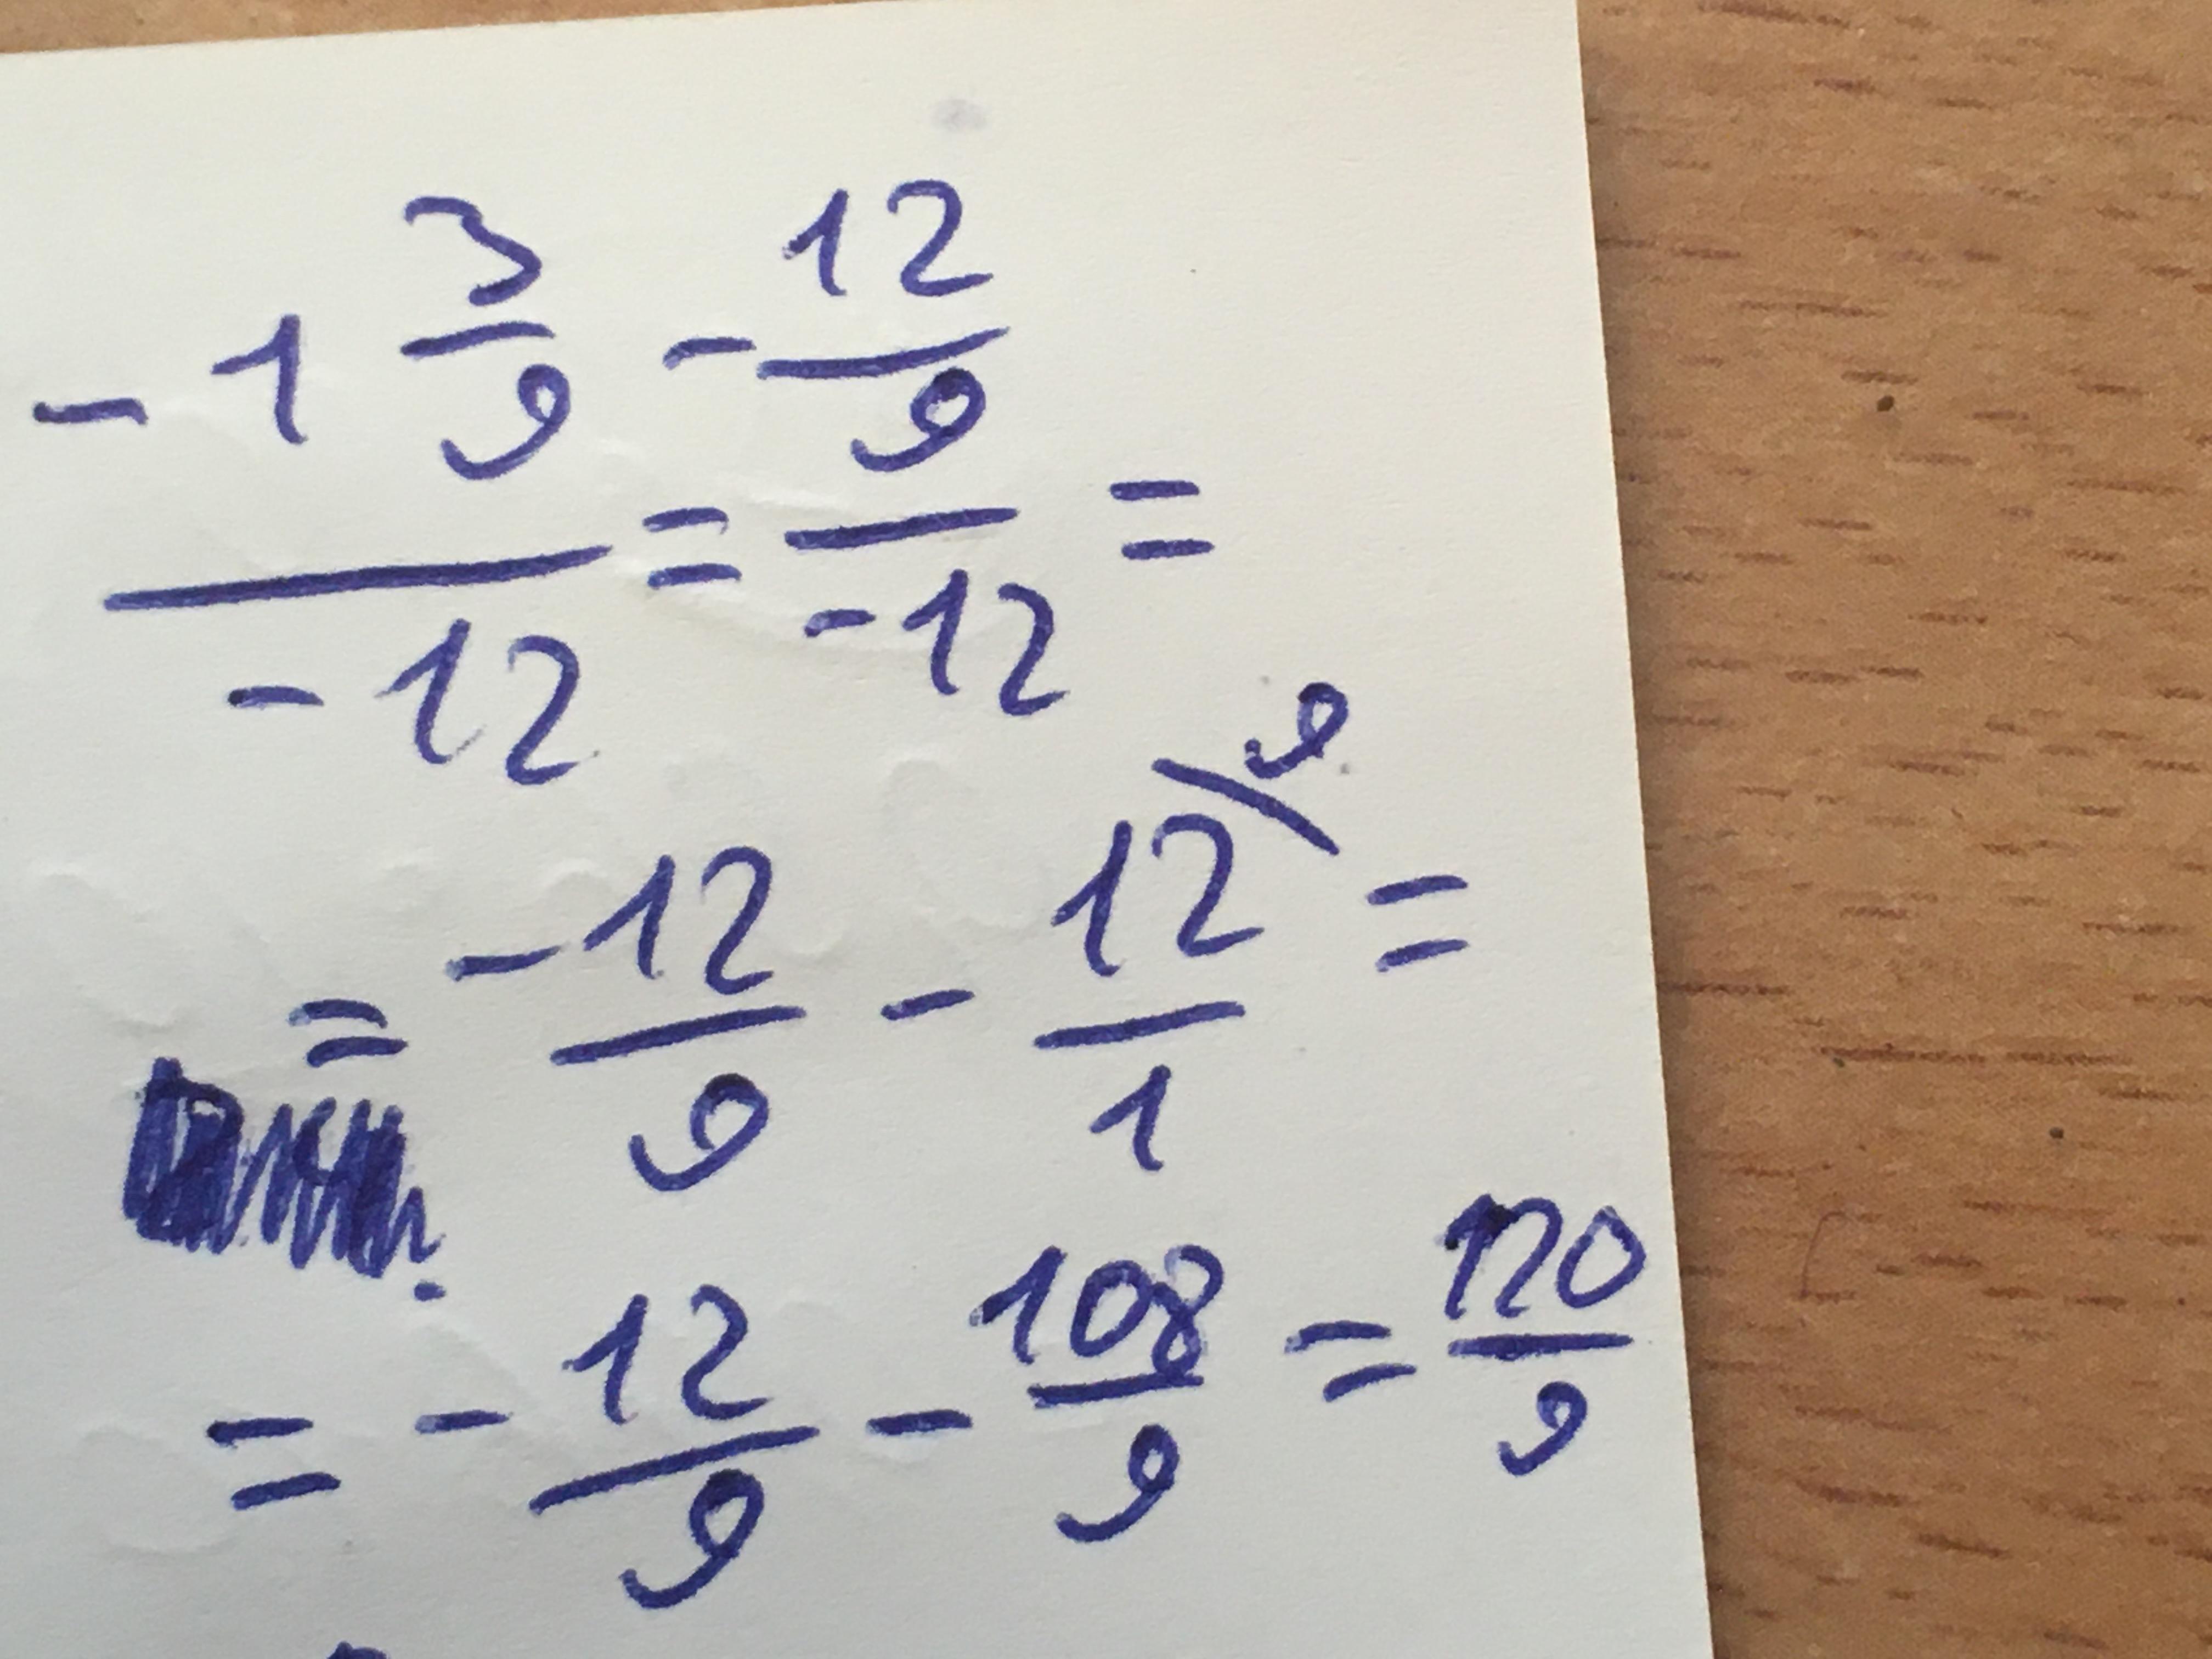 -1 3/9 / -12 = -12/9 / -12 =
= -12/9 - 12/1 \9 =
= -12/9 - 108/9 = 120/9